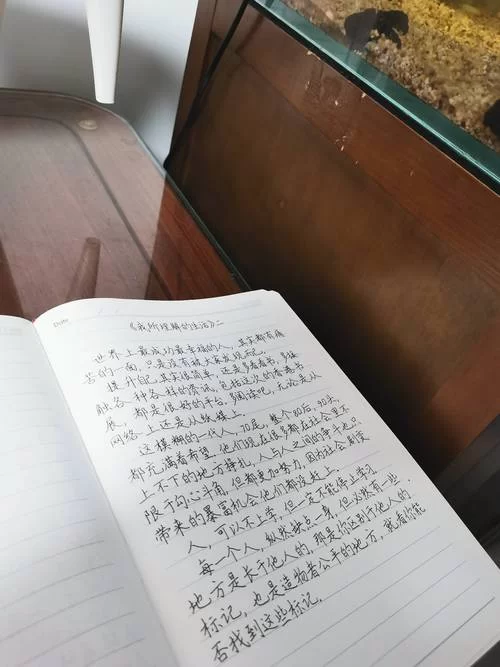 Date
《我所理解的生活》二
世界上最成功最幸福的人，其实都有痛
苦的一面，只是没有被大家发现而已。
提升自己，其实很简单，还是多看书，多接
触各种各样的资讯，包括这次的香港书
展，都是很好的平台，多阅读吧，无论是从
网络上还是从纸媒上。
这模糊的一代人，70尾，整个80后，90头，
都充满着希望，他们现在很多都在社会里不
上不下的地方挣扎，人与人之间的争斗也只
限于勾心斗角，但都更加努力，因为社会剧变
带来的暴富机会他们都没赶上。
人，可以不上学，但一定不能停止学习
每一个人，纵然缺点一身，但必然有一些
地方是长于他人的，那是你区别于他人的
标记，也是造物者公平的地方，就看你能
否找到这些标记。